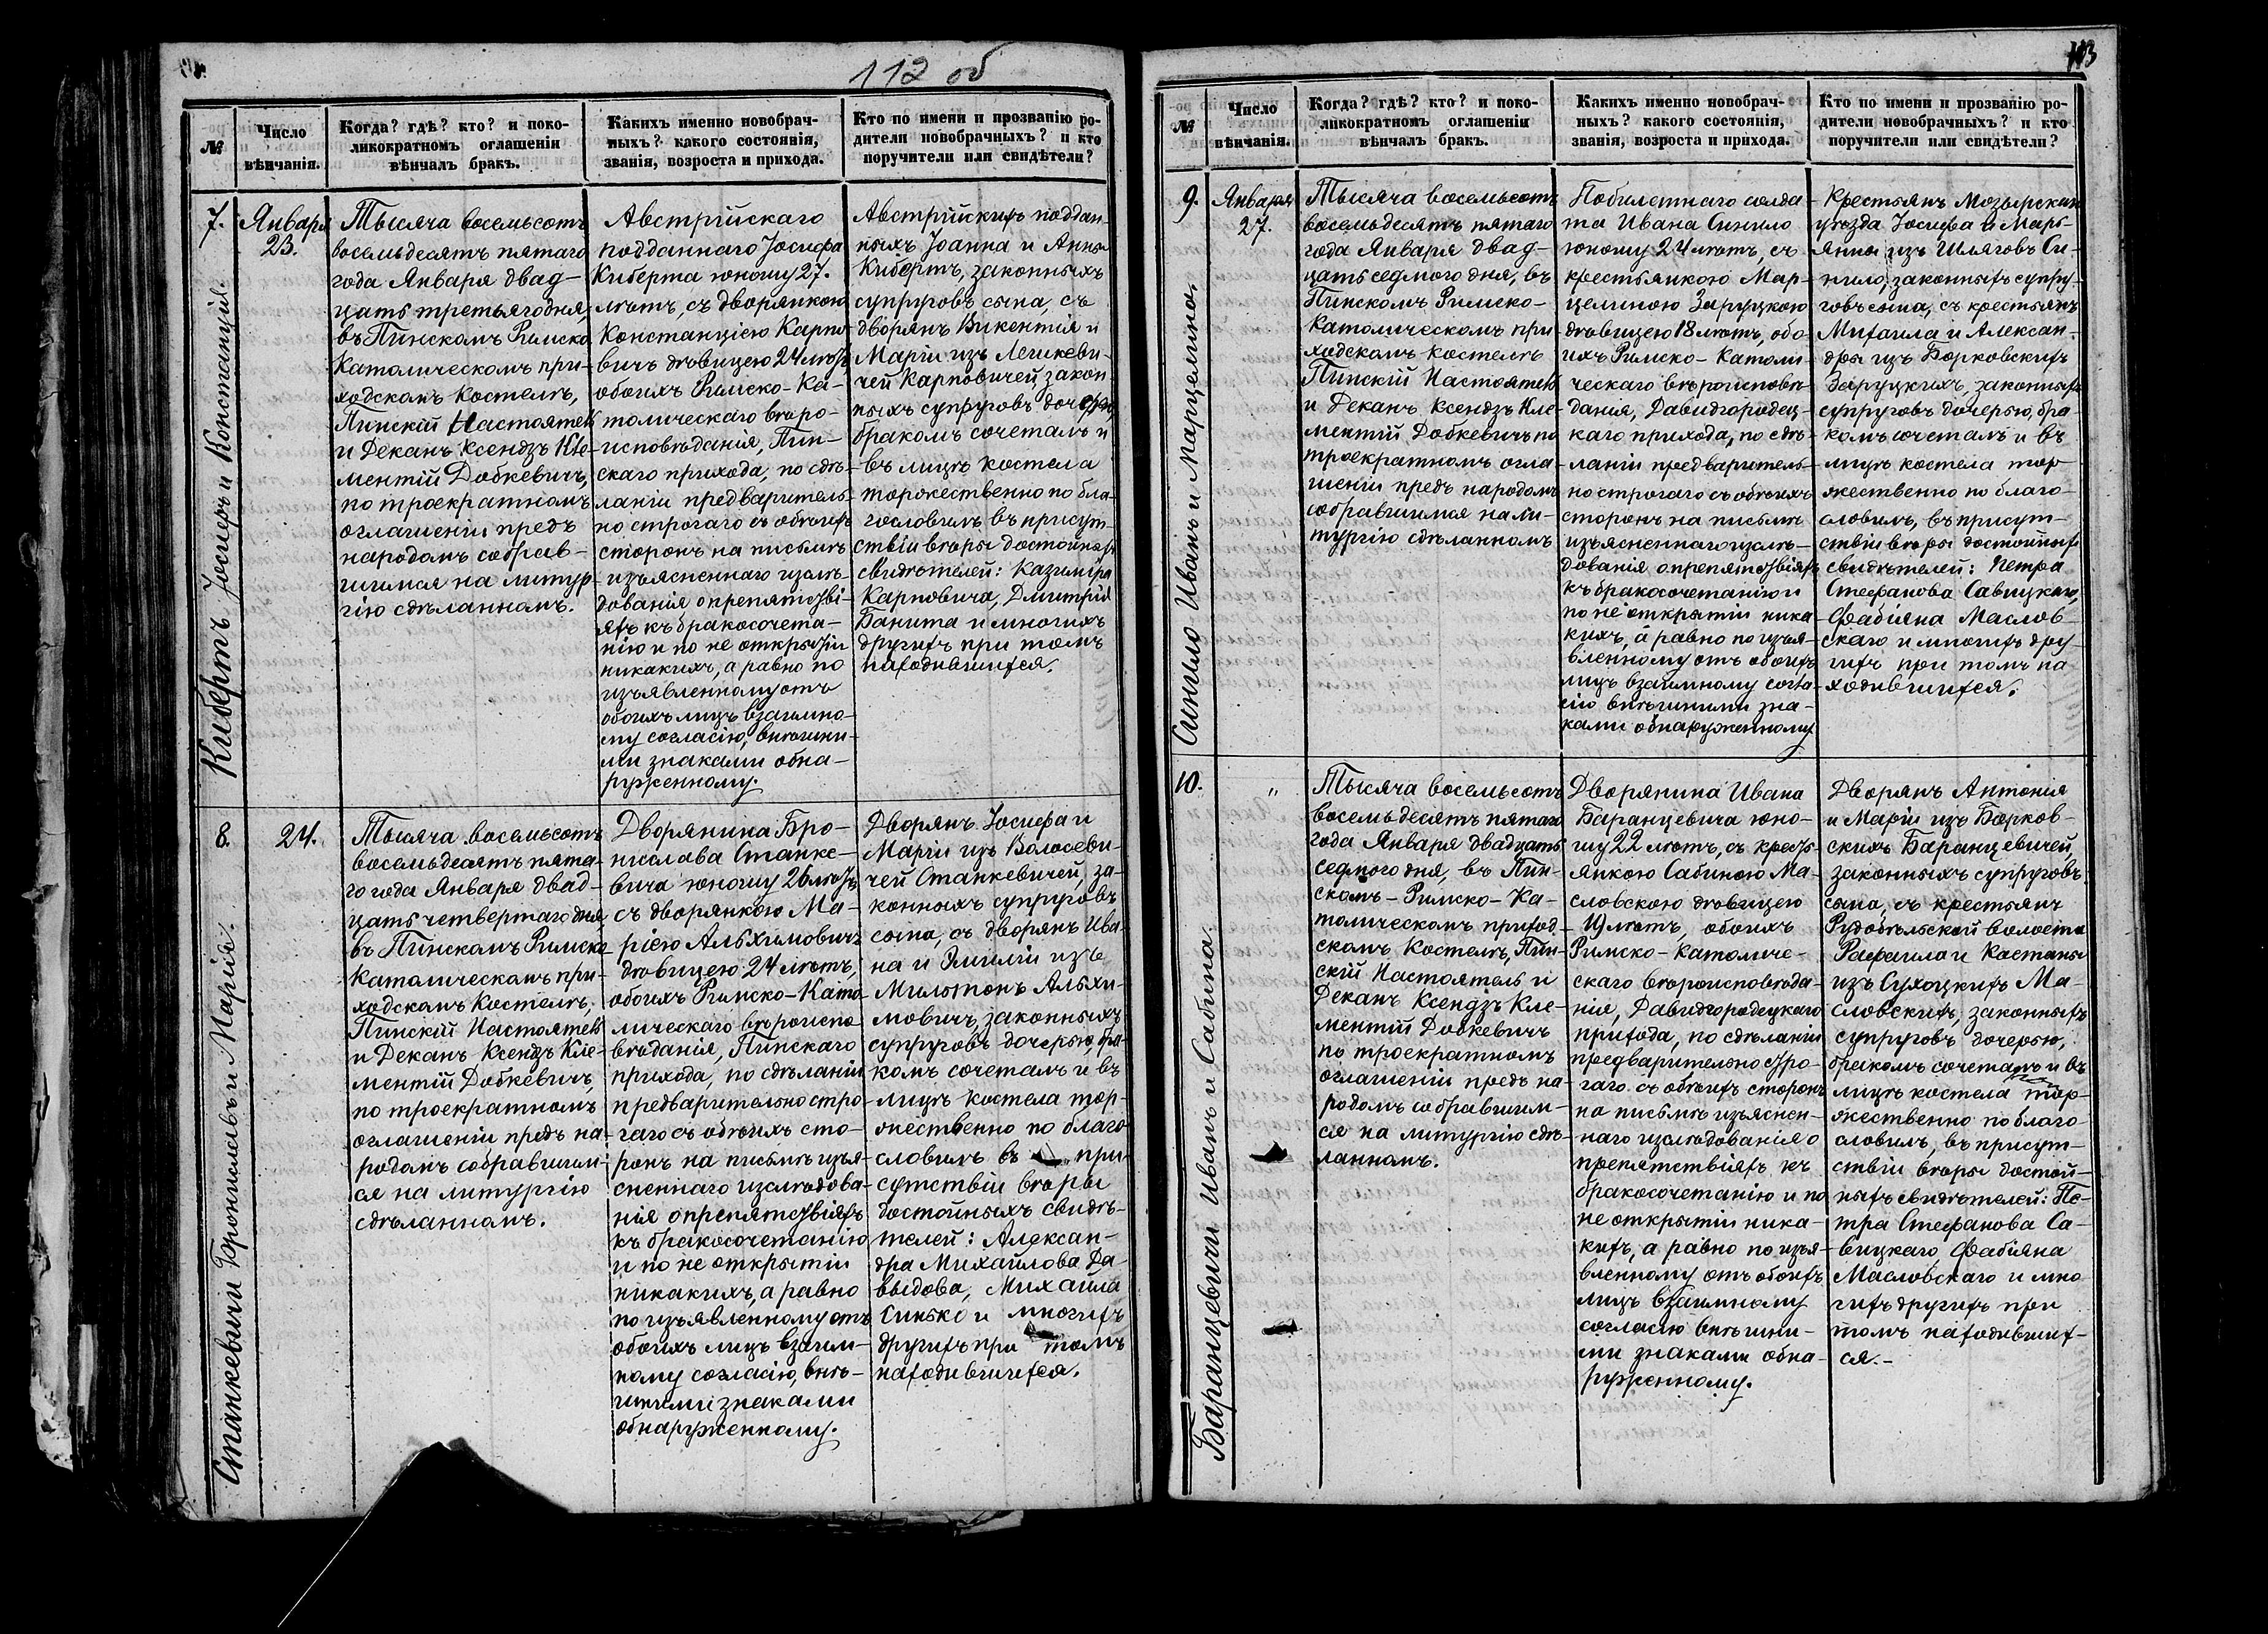 112 об
№
Число
вѣнчанія.
Когда? гдѣ? кто? и поко-
ликократномъ оглашеніи
вѣнчалъ бракъ.
Какихъ именно новобрач-
ныхъ? какого состоянія,
званія, возроста и прихода.
Кто по имени и прозванію ро-
дители новобрачныхъ? и кто
поручители или свидѣтели?
Кибертъ Іосифъ и Констанція.
7.
Января
23.
Тысяча восемьсотъ
восемьдесятъ пятаго
года Января двад-
цать третьяго дня,
въ Пинскомъ Римско
Католическомъ при-
ходскомъ Костелѣ,
Пинскій Настоятель
и Деканъ Ксендзъ Кле-
ментій Добкевичъ,
по троекратномъ
оглашеніи предъ
народомъ собрав-
шимся на литур-
гію сдѣланномъ.
Австрійскаго
подданнаго Іосифа
Киберта юношу 27.
лѣтъ, съ дворянкою
Констанціею Карпо-
вичъ дѣвицею 24 лѣтъ
обоихъ Римско-Ка-
толическаго вѣро-
исповѣданія, Пин-
скаго прихода, по сдѣ-
ланіи предваритель-
но строгаго съ обѣихъ
сторонъ на письмѣ
изъясненнаго изслѣ-
дованія о препятстві-
яхъ къ бракосочета-
нію и по не открытіи
никакихъ, а равно по
изъявленному отъ
обоихъ лицъ взаимно-
му согласію, внѣшни-
ми знаками обна-
руженному.
Австрійскихъ поддан-
ныхъ Іоанна и Анны
Кибертъ, законныхъ
супруговъ сына, съ
дворянъ Викентія и
Маріи изъ Лешкеви-
чей Карповичей, закон-
ныхъ супруговъ дочерью,
бракомъ сочеталъ и
въ лицѣ костела
торжественно по бла-
гословилъ въ присут-
ствіи вѣры достойныхъ
свидѣтелей: Казиміра
Карповича, Дмитрія
Банита и многихъ
другихъ при томъ
находившихся.
Станкевичи Брониславъ и Марія.
8.
24.
Тысяча восемьсотъ
восемьдесятъ пята-
го года Января двад-
цать четвертаго дня,
въ Пинскомъ Римско
Католическомъ при-
ходскомъ Костелѣ,
Пинскій Настоятель
и Деканъ Ксендзъ Кле-
ментій Добкевичъ,
по троекратномъ
оглашеніи предъ на-
родомъ собравшим-
ся на литургію
сдѣланномъ.
Дворянина Бро-
нислава Станке-
вича юношу 26 лѣтъ
съ дворянкою Ма-
ріею Альхимовичъ
дѣвицею 24 лѣтъ,
обоихъ Римско-Като-
лическаго вѣроиспо-
вѣданія, Пинскаго
прихода, по сдѣланіи
предварительно стро-
гаго съ обѣихъ сто-
ронъ на письмѣ изъя-
сненнаго изслѣдова-
нія о препятствіяхъ
къ бракосочетанію
и по не открытіи
никакихъ, а равно
по изъявленному отъ
обоихъ лицъ взаим-
ному согласію, внѣ-
шними знаками
обнаруженному.
Дворянъ Іосифа и
Маріи изъ Волосеви-
чей Станкевичей, за-
конныхъ супруговъ
сына, съ дворянъ Ива-
на и Эмиліи изъ
Мильтонъ Альхи-
мовичъ, законныхъ
супруговъ дочерью, бра-
комъ сочеталъ и въ
лицѣ костела тор-
жественно по благо-
словилъ въ при-
сутствіи вѣры
достойныхъ свидѣ-
телей: Алексан-
дра Михайлова Да-
выдова, Михаила
Синьке и многихъ
другихъ при томъ
находившихся.
113
№
Число
вѣнчанія.
Когда? гдѣ? кто? и поко-
ликократномъ оглашеніи
вѣнчалъ бракъ.
Какихъ именно новобрач-
ныхъ? какого состоянія,
званія, возроста и прихода.
Кто по имени и прозванію ро-
дители новобрачныхъ? и кто
поручители или свидѣтели?
Синило Иванъ и Марцелина.
9.
Января
27.
Тысяча восемьсотъ
восемьдесятъ пятаго
года Января двад-
цать седмого дня, въ
Пинскомъ Римско-
Католическомъ при-
ходскомъ Костелѣ
Пинскій Настоятель
и Деканъ Ксендзъ Кле-
ментій Добкевичъ по
троекратномъ огла-
шеніи предъ народомъ
собравшимся на ли-
тургію сдѣланномъ
Побилетнаго солда-
та Ивана Синило
юношу 24 лѣтъ, съ
крестьянкою Мар-
целиною Заруцкою
дѣвицею 18 лѣтъ, обо-
ихъ Римско-Католи-
ческаго вѣроисповѣ-
данія, Давидгородец-
каго прихода, по сдѣ-
ланіи предваритель-
но строгаго съ обѣихъ
сторонъ на письмѣ
изъясненнаго изслѣ-
дованія о препятствіяхъ
къ бракосочетанію и
по не открытіи ника-
кихъ, а равно по изъя-
вленному отъ обоихъ
лицъ взаимному согла-
сію внѣшними зна-
ками обнаруженному
Крестьянъ Мозырскаго
уѣзда Іосифа и Марь-
янны изъ Шляговъ Си-
нило, законныхъ супру-
говъ сына, съ крестьянъ
Михаила и Алексан-
дры изъ Борковскихъ
Заруцкихъ, законныхъ
супруговъ дочерью, бра-
комъ сочеталъ и въ
лицѣ костела тор-
жественно по благо-
словилъ, въ присут-
ствіи вѣры достойныхъ
свидѣтелей: Петра
Стефанова Савицкаго,
Фабіяна Маслов-
скаго и многихъ дру-
гихъ при томъ на-
ходившихся.
Баранцевичи Иванъ и Сабина.
10.
"
Тысяча восемьсотъ
восемьдесятъ пятаго
года Января двадцать
седмого дня, въ Пин-
скомъ-Римско-Ка-
толическомъ приход-
скомъ Костелѣ, Пин-
скій Настоятель и
Деканъ Ксендзъ Кле-
ментій Добкевичъ
по троекратномъ
оглашеніи предъ на-
родомъ собравшим-
ся на литургію сдѣ-
ланномъ.
Дворянина Ивана
Баранцевича юно-
шу 22 лѣтъ, съ кресть-
янкою Сабиною Ма-
словскою дѣвицею
19 лѣтъ, обоихъ
Римско-Католиче-
скаго вѣроисповѣда-
нія, Давидгородецкаго
прихода, по сдѣланіи
предварительно стро-
гаго съ обѣихъ сторонъ
на письмѣ изъяснен-
наго изслѣдованія о
препятствіяхъ къ
бракосочетанію и по
не открытіи ника-
кихъ, а равно по изъя-
вленному отъ обоихъ
лицъ взаимному
согласію внѣшни-
ми знаками обна-
руженному.
Дворянъ Антонія
и Маріи изъ Борков-
скихъ Баранцевичей,
законныхъ супруговъ
сына, съ крестьянъ
Рудобѣльской волости
Рафаила и Констан
изъ Сухоцкихъ Ма-
словскихъ, законныхъ
супруговъ дочерью,
бракомъ сочеталъ и въ
лицѣ костела тор-
жественно по благо-
словилъ, въ присут-
ствіи вѣры достой-
ныхъ свидѣтелей: Пе-
тра Стефанова Са-
вицкаго, Фабіяна
Масловскаго и мно-
гихъ другихъ при
томъ находивших-
ся.-